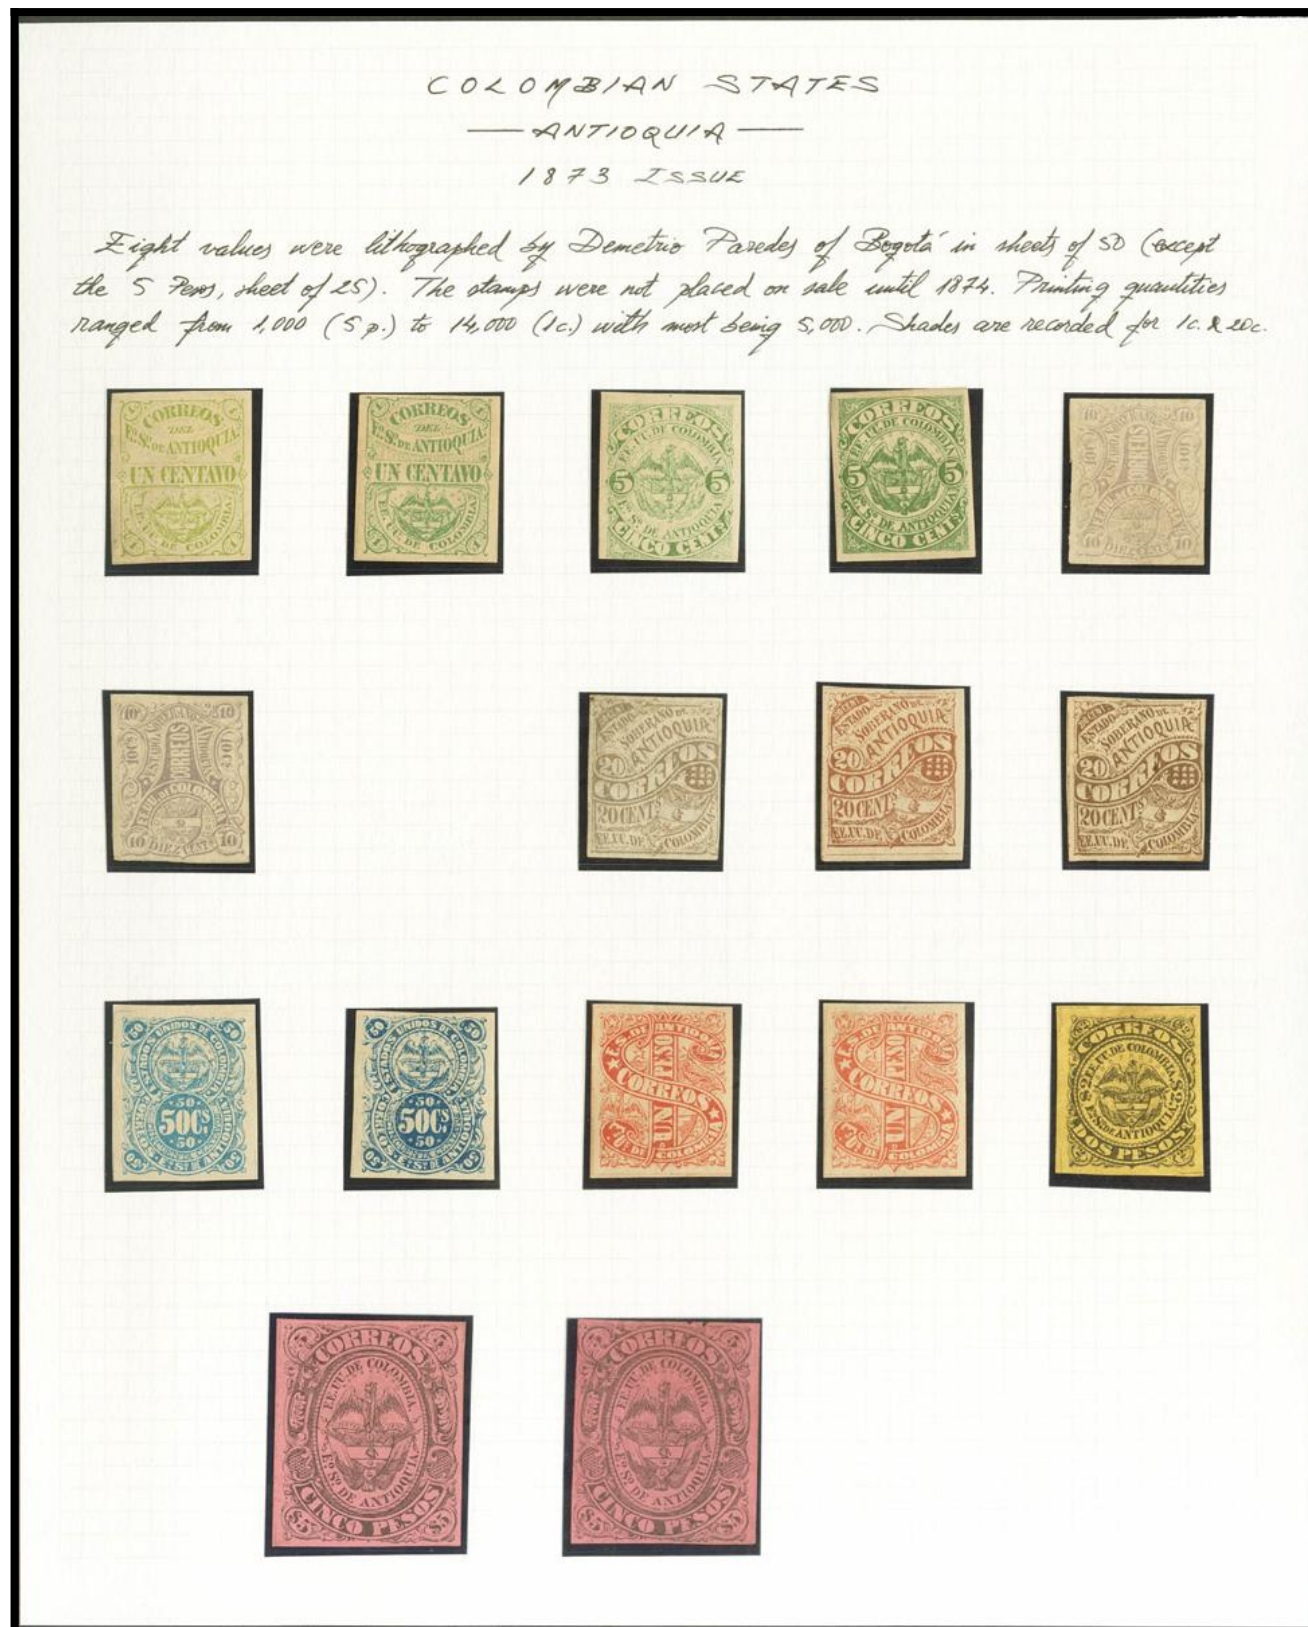 COLOMBIAN STATES
— ANTIOQUIA —
1873 ISSUE
Eight values were lithographed by Demetrio Paredes of Bogotá in sheets of 50 (except
the 5 Pesos, sheet of 25). The stamps were not placed on sale until 1874. Printing quantities
ranged from 1,000 (5 p.) to 14,000 (1c.) with most being 5,000. Shades are recorded for 1c. & 20c.
1 1
CORREOS
DEL
Eº. Sº. DE ANTIOQUIA
UN CENTAVO
EE. U. DE COLOMBIA
1 1
1 1
CORREOS
DEL
Eº. Sº. DE ANTIOQUIA
UN CENTAVO
EE. U. DE COLOMBIA
1 1
CORREOS
EE.UU. DE COLOMBIA
5 5
Eº. Sº. DE ANTIOQUIA
CINCO CENTS
CORREOS
EE.UU. DE COLOMBIA
5 5
Eº. Sº. DE ANTIOQUIA
CINCO CENTS
10 10
ESTADO SOBERANO DE ANTIOQUIA
10C 10C
CORREOS
EE.UU. DE COLOMBIA
10 DIEZ CENTS 10
10 10
ESTADO SOBERANO DE ANTIOQUIA
10C 10C
CORREOS
EE.UU. DE COLOMBIA
10 DIEZ CENTS 10
ESTADO
SOBERANO DE
ANTIOQUIA
20
CORREOS
20 CENTS
EE.UU. DE COLOMBIA
ESTADO
SOBERANO DE
ANTIOQUIA
20
CORREOS
20 CENTS
EE.UU. DE COLOMBIA
ESTADO
SOBERANO DE
ANTIOQUIA
20
CORREOS
20 CENTS
EE.UU. DE COLOMBIA
50 50
ESTADOS UNIDOS DE COLOMBIA
50
50Cs
50
CORREOS Eº. Sº. DE ANTIOQUIA
50 50
50 50
ESTADOS UNIDOS DE COLOMBIA
50
50Cs
50
CORREOS Eº. Sº. DE ANTIOQUIA
50 50
E.S. DE ANTIOQUIA
UN PESO
CORREOS
E.U. DE COLOMBIA
E.S. DE ANTIOQUIA
UN PESO
CORREOS
E.U. DE COLOMBIA
$2 $2
CORREOS
EE.UU. DE COLOMBIA
$2 $2
Eº. Sº. DE ANTIOQUIA
DOS PESOS
$5 $5
CORREOS
EE.UU. DE COLOMBIA
Eº. Sº. DE ANTIOQUIA
CINCO PESOS
$5 $5
$5 $5
CORREOS
EE.UU. DE COLOMBIA
Eº. Sº. DE ANTIOQUIA
CINCO PESOS
$5 $5